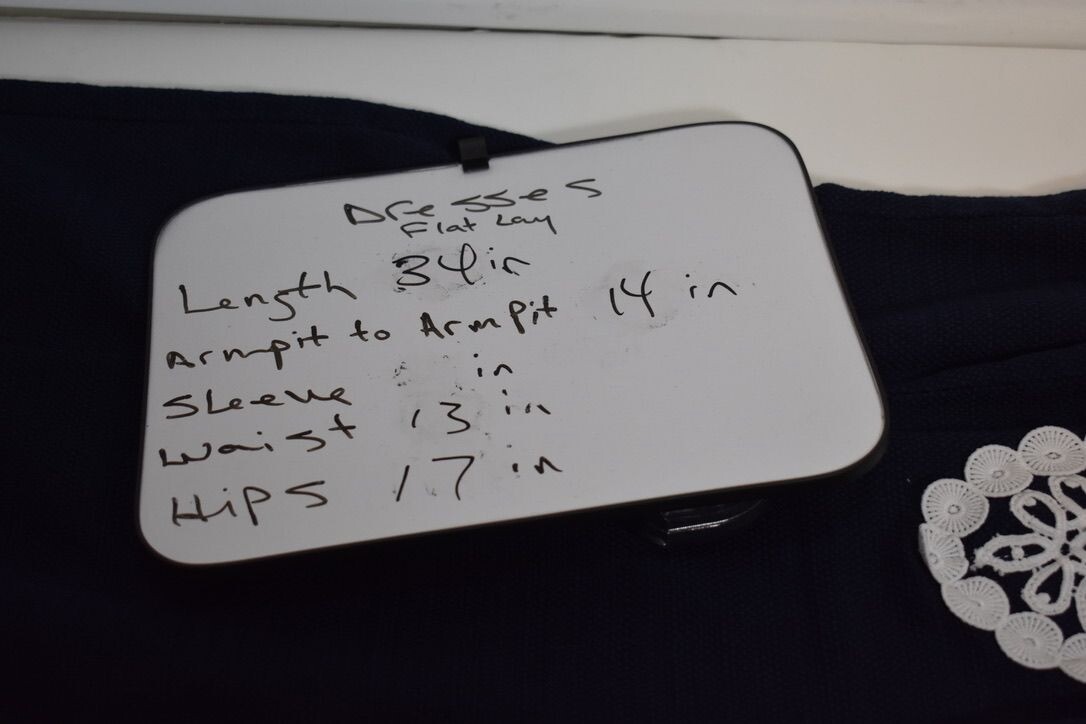 Dresses
Flat Lay
Length 34 in
Armpit to Armpit 14 in
Sleeve in
Waist 13 in
Hips 17 in